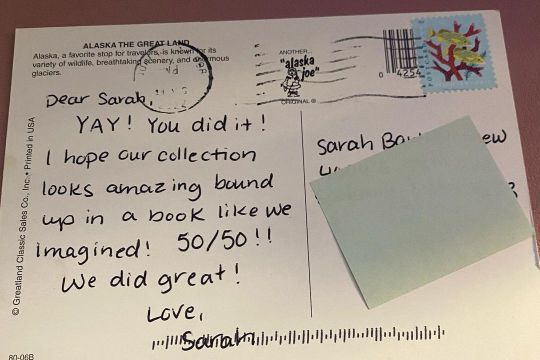 ALASKA THE GREAT LAND
Alaska, a favorite stop for travelers, is known for its
variety of wildlife, breathtaking scenery, and enormous
glaciers.
ANOTHER...
"alaska
joe"
ORIGINAL ®
0 4254
Dear Sarah,
YAY! You did it!
I hope our collection
looks amazing bound
up in a book like we
imagined! 50/50!!
We did great!
Love,
Sarah
Sarah
ew
© Greatland Classic Sales Co., Inc. • Printed in USA
80-06B